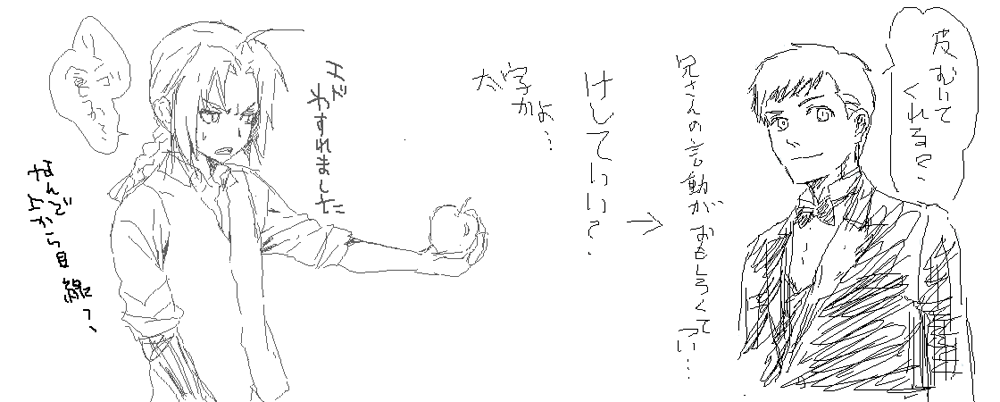 皮むいて
くれる？
兄さんの言動がおもしろくて
つい…
→
けしていい？
字かよ…
エド
わすれました
なんで
上から目線っ、